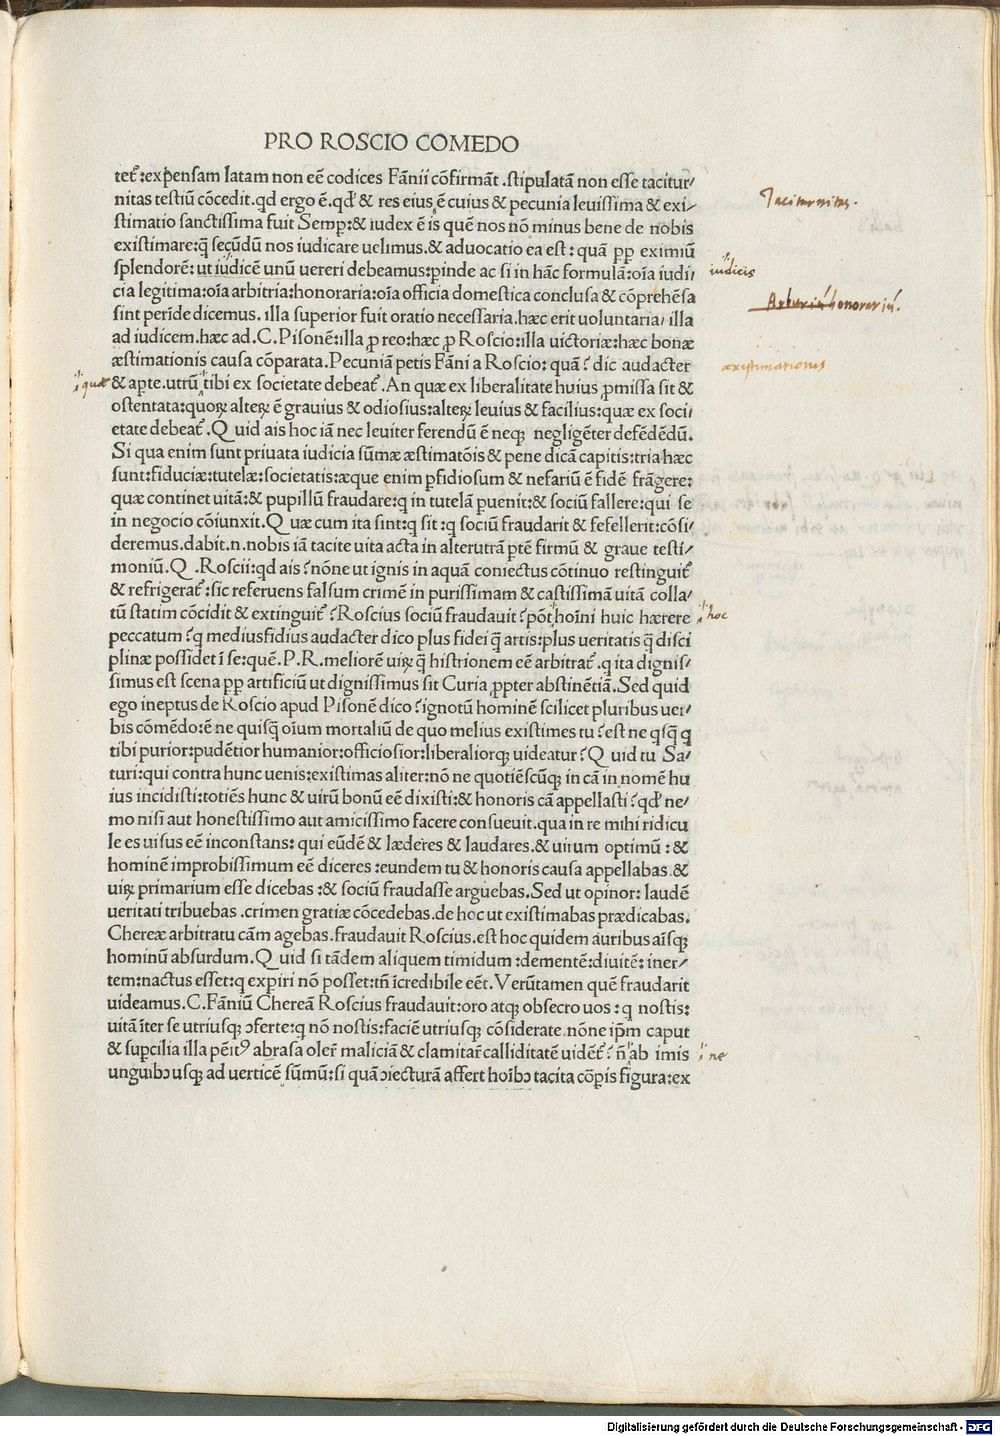 PRO ROSCIO COMEDO
tet᷑:expensam latam non eē codices Fānii cōfirmāt .stipulatā non esse tacitur/
nitas testiū cōcedit.qd ergo ē.qd' & res eius ē cuius & pecunia leuissima & exi/
stimatio sanctissima fuit Semꝑ:& iudex ē is quē nos nō minus bene de nobis
existimare:q̄ secūdū nos iudicare uelimus.& aduocatio ea est: quā ꝓp eximiū
splendorē: ut iudicē unū uereri debeamus:ꝑinde ac si in hāc formulā:oīa iudi/
cia legitima:oīa arbitria:honoraria:oīa officia domestica conclusa & cōprehēsa
sint perīde dicemus. illa superior fuit oratio necessaria.hæc erit uoluntaria/ illa
ad iudicem.hæc ad.C.Pisonē:illa ꝓ reo:hæc ꝓ Roscio:illa uictoriæ:hæc bonæ
æstimationis causa cōparata.Pecuniā petis Fāni a Roscio: quā? dic audacter
& aꝑte.utrū tibi ex societate debeat᷑.An quæ ex liberalitate huius ꝓmissa sit &
ostentata:quoꝝ alteꝝ ē grauius & odiosius:alteꝝ leuius & facilius:quæ ex soci/
etate debeat᷑.Quid ais hoc iā nec leuiter ferendū ē neqꝫ negligēter defēdēdū.
Si qua enim sunt priuata iudicia sūmæ æstimatōis & pene dicā capitis:tria hæc
sunt:fiduciæ:tutelæ:societatis:æque enim ꝑfidiosum & nefariū ē fidē frāgere:
quæ continet uitā:& pupillū fraudare:q in tutelā ꝑuenit:& sociū fallere:qui se
in negocio cōiunxit.Quæ cum ita sint:q sit :q sociū fraudarit & fefellerit:cōsi/
deremus.dabit.n.nobis iā tacite uita acta in alterutrā ꝑtē firmū & graue testi/
moniū.Q .Roscii:qd ais?nōne ut ignis in aquā coniectus cōtinuo restinguit᷑
& refrigerat᷑:sic referuens falsum crimē in purissimam & castissimā uitā colla/
tū statim cōcidit & extinguit᷑?Roscius sociū fraudauit?pōt hoīni huic hærere
peccatum?q mediusfidius audacter dico plus fidei q̄ artis:plus ueritatis q̄ disci
plinæ possidet ī se:quē.P.R.meliorē uiꝝ q̄ histrionem eē arbitrat᷑.q ita dignis/
simus est scena ꝓp artificiū ut dignissimus sit Curia ꝓpter abstinētiā.Sed quid
ego ineptus de Roscio apud Pisonē dico?ignotū hominē scilicet pluribus uer/
bis cōmēdo:ē ne quisq̄ oīum mortaliū de quo melius existimes tu?est ne qsq̄ q
tibi purior:pudētior humanior:officiosior:liberaliorqꝫ uideatur?Quid tu Sa/
turi:qui contra hunc uenis:existimas aliter:nō ne quotiēscūqꝫ in cā in nomē hu
ius incidisti:totiēs hunc & uirū bonū eē dixisti:& honoris cā appellasti?qd' ne/
mo nisi aut honestissimo aut amicissimo facere consueuit.qua in re mihi ridicu
le es uisus eē inconstans: qui eūdē & læderes & laudares.& uirum optimū :&
hominē improbissimum eē diceres :eundem tu & honoris causa appellabas &
uiꝝ primarium esse dicebas :& sociū fraudasse arguebas.Sed ut opinor: laudē
ueritati tribuebas .crimen gratiæ cōcedebas.de hoc ut existimabas prædicabas.
Chereæ arbitratu cām agebas.fraudauit Roscius.est hoc quidem auribus aīsqꝫ
hominū absurdum.Quid si tādem aliquem timidum :dementē:diuitē: iner/
tem:nactus esset:q experiri nō posset:tn̄ īcredibile eēt.Verūtamen quē fraudarit
uideamus.C.Fāniū Chereā Roscius fraudauit:oro atqꝫ obsecro uos : q nostis:
uitā īter se utriusqꝫ ↄferte:q nō nostis:faciē utriusqꝫ cōsiderate.nōne ip̄m caput
& suꝑcilia illa pēitꝰ abrasa oler̄ maliciā & clamitar̄ calliditatē uidēt᷑? n̄ ab imis
unguibꝫ usqꝫ ad uerticē sūmū:si quā ↄiecturā affert hoībꝫ tacita cōꝑis figura:ex
Taciturnitas.
iudicis
honorariū.
æxistimationis
quæ
hoc
ne
Digitalisierung gefördert durch die Deutsche Forschungsgemeinschaft - DFG